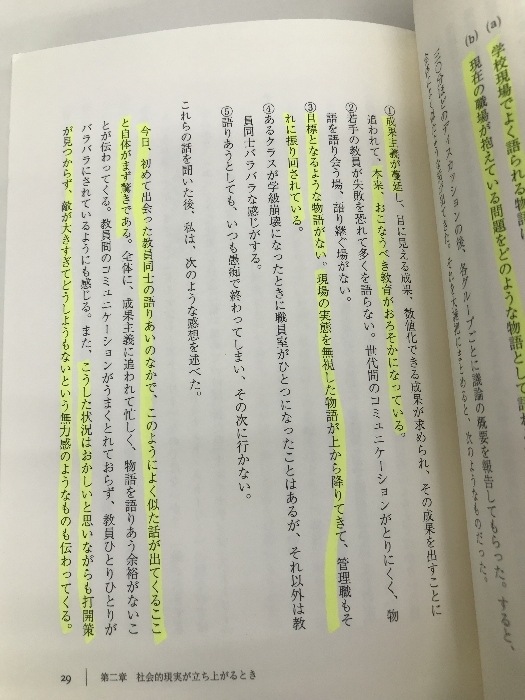 (a) 学校現場でよく語られる物語
(b) 現在の職場が抱えている問題をどのような物語として語
各グループごとに議論の概要を報告してもらった。すると、
次のようなものだった。
①成果主義が蔓延し、目に見える成果、数値化できる成果が求められ、その成果を出すことに
追われて、本来、おこなうべき教育がおろそかになっている。
②若手の教員が失敗を恐れて多くを語らない。世代間のコミュニケーションがとりにくく、物
語を語り合う場、語り継ぐ場がない。
③目標となるような物語がない。現場の実態を無視した物語が上から降りてきて、管理職もそ
れに振り回されている。
④あるクラスが学級崩壊になったときに職員室がひとつになったことはあるが、それ以外は教
員同士バラバラな感じがする。
⑤語りあうとしても、いつも愚痴で終わってしまい、その次に行かない。
これらの話を聞いた後、私は、次のような感想を述べた。
今日、初めて出会った教員同士の語りあいのなかで、このようによく似た話が出てくるこ
と自体がまず驚きである。全体に、成果主義に追われて忙しく、物語を語りあう余裕がないこ
とが伝わってくる。教員間のコミュニケーションがうまくとれておらず、教員ひとりひとりが
バラバラにされているようにも感じる。また、こうした状況はおかしいと思いながらも打開策
が見つからず、敵が大きすぎてどうしようもないという無力感のようなものも伝わってくる。
29 第二章 社会的現実が立ち上がるとき